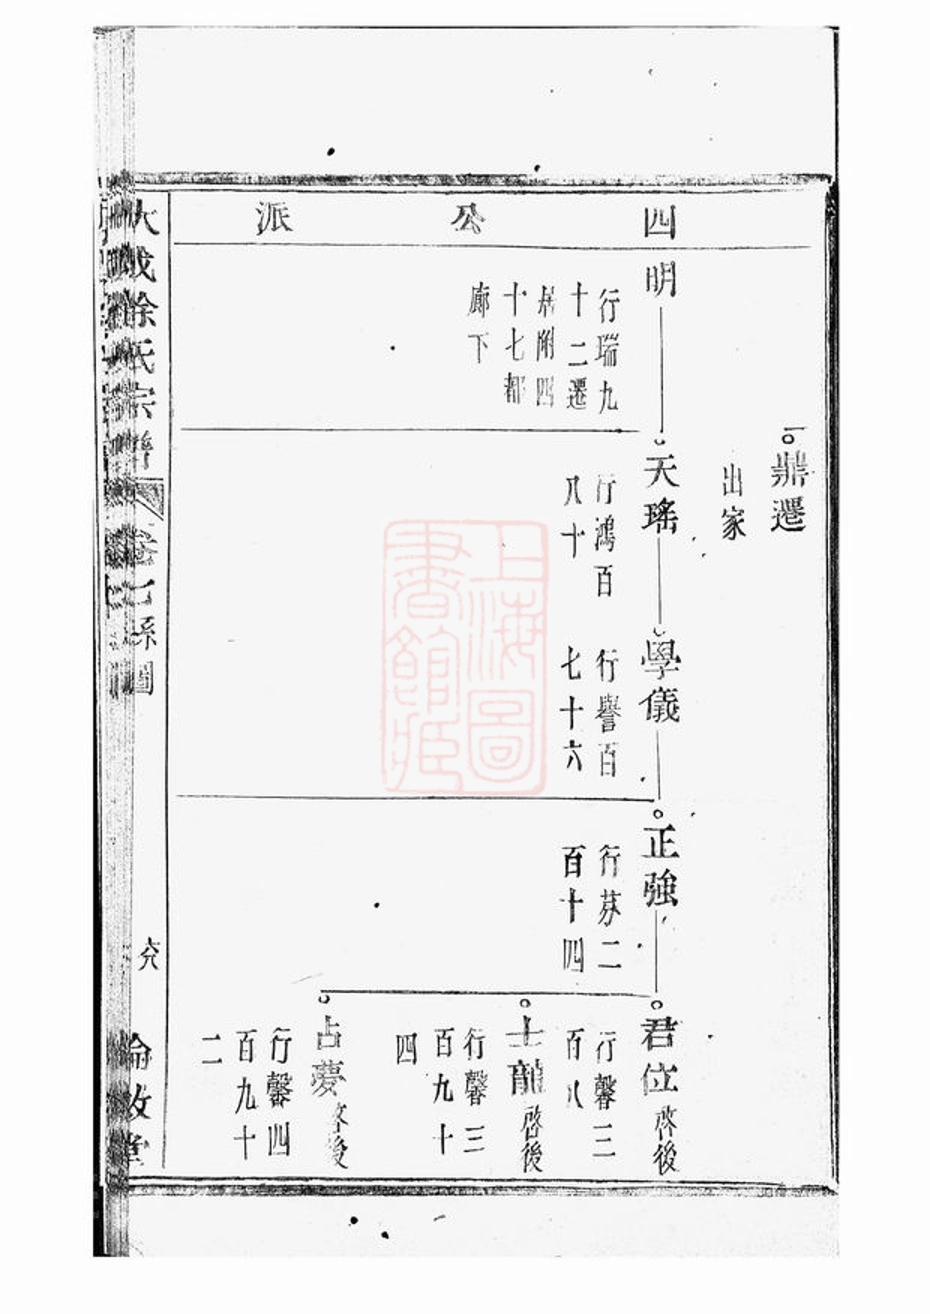 四公派
鼎遷
出家
明
行瑞九
十二遷
居附四
十七都
廊下
天瑤
行鴻百
八十
學儀
行譽百
七十六
正強
行茐二
百十四
君位 啓後
行馨三
百八
士龍 啓後
行馨三
百九十
四
占夢 啓後
行馨四
百九十
二
大成徐氏宗譜
卷七 系圖
六八
倫敘堂
上海圖
書館藏